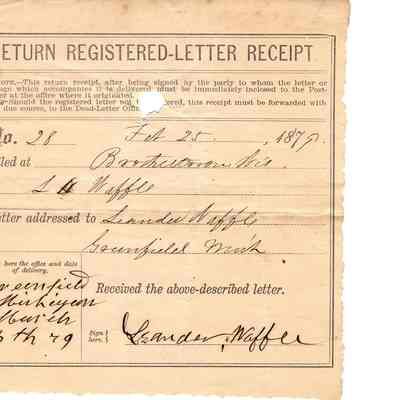 ETURN REGISTERED-LETTER RECEIPT
—This return receipt, after being signed by the party to whom the letter or
which accompanies it is delivered must be immediately inclosed to the Post-
er at the office where it originated.
Should the registered letter not be delivered, this receipt must be forwarded with
due source, to the Dead-Letter Office.
No. 28 Feb 25 , 1879.
led at Brothertown Wis
L Waffle
etter addressed to Leander Waffle
Greenfield Mich
here the office and date
of delivery.
reenfield
Michigan
March
th 79
Received the above-described letter.
Sign
here. Leander Waffle